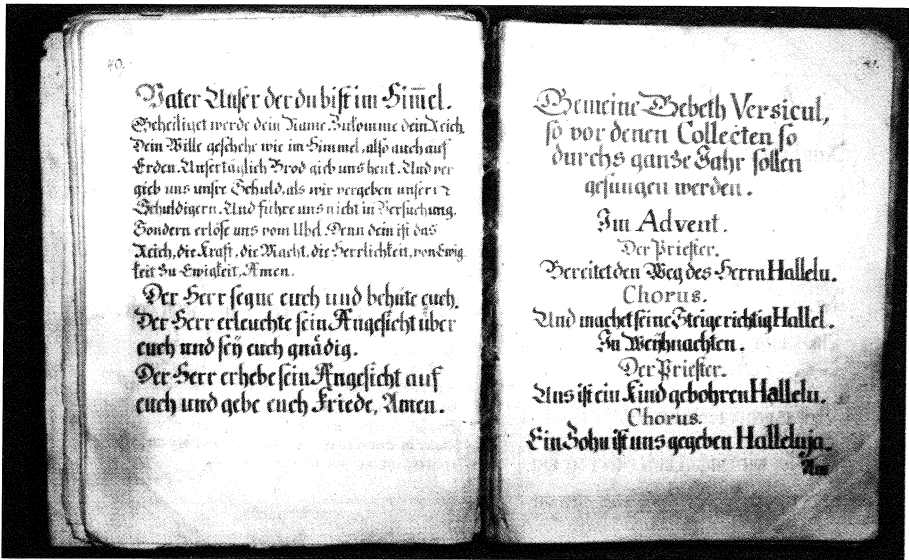 40.
Vater Unser der du bist im Him̄el.
Geheiliget werde dein Name. Zukomme dein Reich.
Dein Wille geschehe wie im Himmel, also auch auf
Erden. Unser täglich Brod gieb uns heut. Und ver
gieb uns unsre Schuld, als wir vergeben unsern
Schuldigern. Und führe uns nicht in Versuchung.
Sondern erlöse uns vom Ubel. Denn dein ist das
Reich, die Kraft, die Macht, die Herrlichkeit, von Ewig
keit zu Ewigkeit, Amen.
Der Herr segne euch und behüte euch.
Der Herr erleuchte sein Angesicht über
euch und seÿ euch gnädig.
Der Herr erhebe sein Angesicht auf
euch und gebe euch Friede, Amen.
41.
Gemeine Gebeth Versicul,
so vor denen Collecten so
durchs ganße Jahr sollen
gesungen werden.
Im Advent.
Der Priester.
Bereitet den Weg des Herrn Hallelu.
Chorus.
Und machet seine Steige richtig Hallel.
In Weÿhnachten.
Der Priester.
Uns ist ein Kind gebohren Hallelu.
Chorus.
Ein Sohn ist uns gegeben Halleluja.
Am